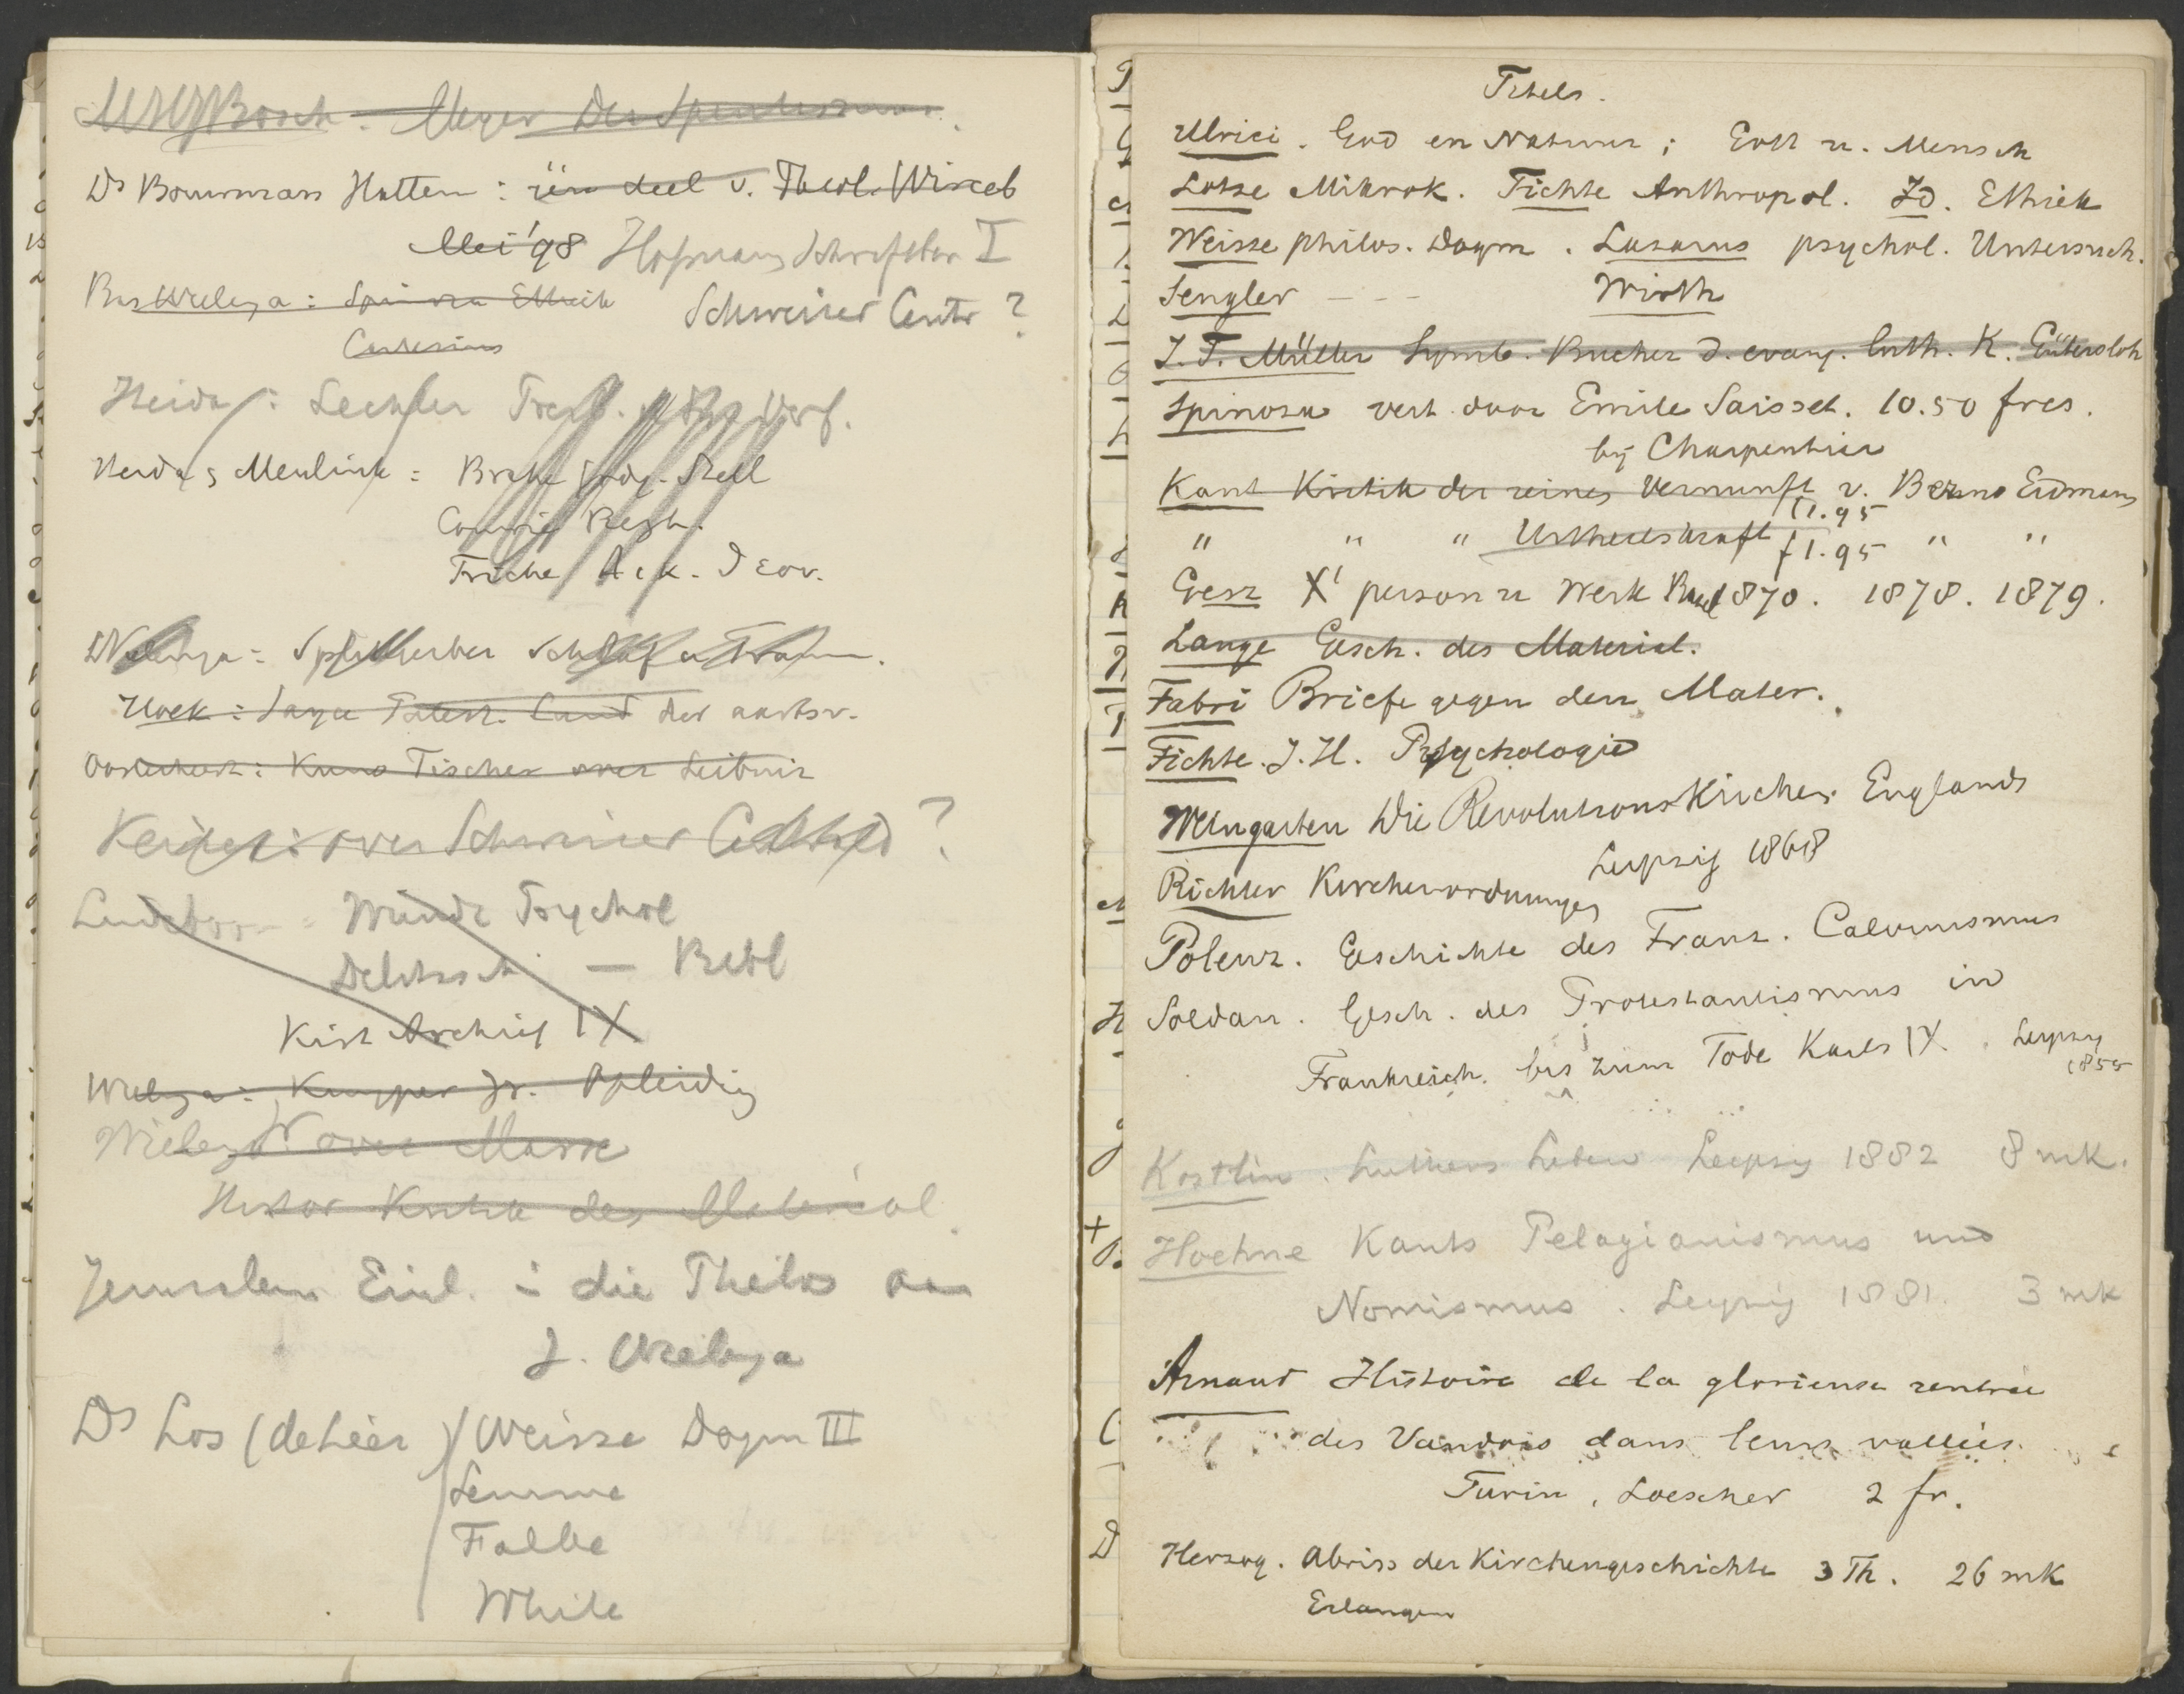 Bosch. Meyer Der
Ds Bouwman Hattem: één deel v. Theol. Wirceb
Mei '98 Hofmann Schriftbew I
Wielenga: Spinoza Ethiek Schweizer Centr ?
Cartesius
Heida: Lechler
Heida, Meulink: Brahe Godg. Stell
Comrie
Friche
Wielenga: Splittgerber Schlaf u Traum.
Hoek: Land der aartsv.
Kuno Fischer over Leibniz
over Schweizer ?
Lindeboom = Wundt Psychol
Delitzsch — Bibl
Kist Archief IX
Wielenga: Kuyper Jr. Opleiding
Wielenga over Marx
Histor Kritik des Material.
Jerusalem Einl. i die Philos aan
J. Wielenga
Ds Los (de Leer) Weisse Dogm III
Lemme
Falke
White
Titels.
Ulrici. God en Natuur; Gott u. Mensch
Lotze Mikrok. Fichte Anthropol. Id. Ethiek
Weisse philos. Dogm. Lazarus psychol. Untersuch.
Sengler - - - Wirth
J.T. Müller Symb. Bucher d. evang. luth. K. Gütersloh
Spinoza vert. door Emile Saisset. 10.50 frcs.
bij Charpentier
Kant Kritik der reinen Vernunft v. Benno Erdmann
f1.95
" " " Urtheilskraft f1.95 " "
Gess Xi person u Werk Basel 1870. 1878. 1879.
Lange Gesch. des Material.
Fabri Briefe gegen den Mater.
Fichte. J.H. Psychologie
Weingarten Die Revolutionskirchen Englands
Leipzig 1868
Richter Kirchenordnungen
Polenz. Geschichte des Franz. Calvinismus
Soldan. Gesch. des Protestantismus in
Frankreich bis zum Tode Karls IX. Leipzig
1855
Kostlin. Luthers Leben Leipzig 1882 8 mk.
Hoehne Kants Pelagianismus und
Nomismus. Leipzig 1881. 3 mk
Arnaud Histoire de la glorieuse rentrée
des Vaudois dans leurs vallées.
Turin, Loescher 2 fr.
Herzog. Abriss der Kirchengeschichte 3 Th. 26 mk
Erlangen